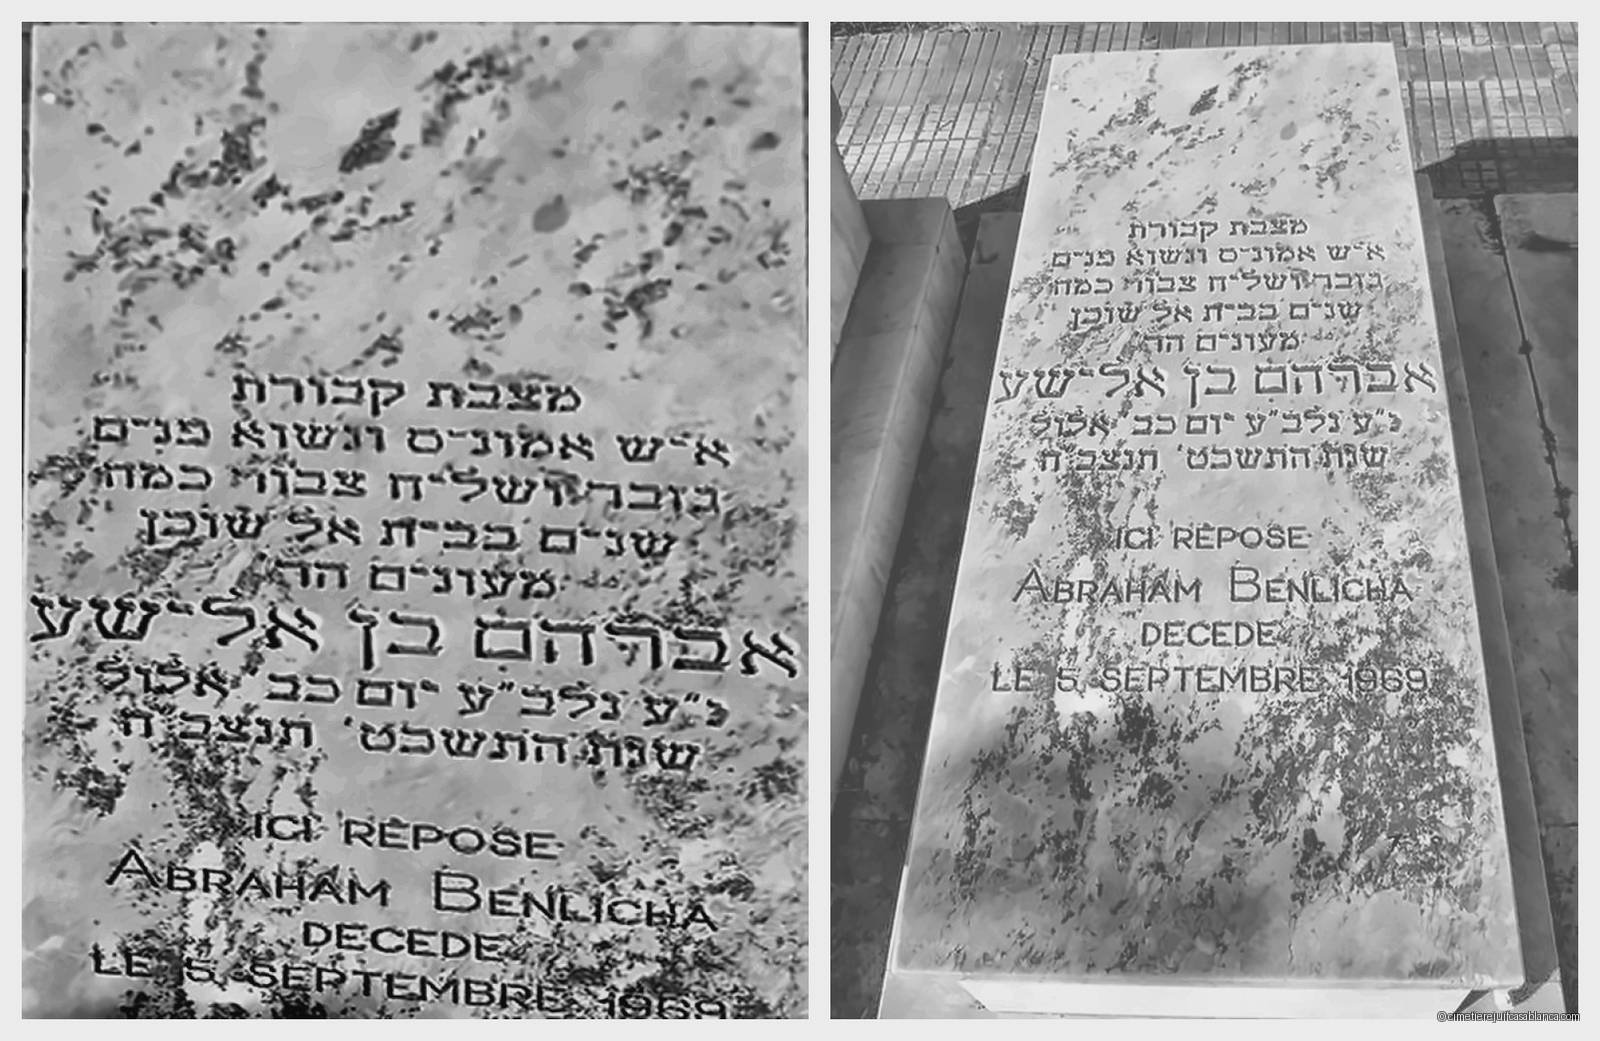 מצבת קבורת
איש אמונים ונשוא פנים
גובר ושליח צבור כמה
שנים בבית אל שוכן
מעונים הר'
אברהם בן אלישע
נ״ע נלב״ע יום כב' אלול
שנת התשכט' תנצב״ה
ICI REPOSE
ABRAHAM BENLICHA
DECEDE
LE 5 SEPTEMBRE 1969
מצבת קבורת
איש אמונים ונשוא פנים
גובר ושליח צבור כמה
שנים בבית אל שוכן
מעונים הר'
אברהם בן אלישע
נ״ע נלב״ע יום כב' אלול
שנת התשכט' תנצב״ה
ICI REPOSE
ABRAHAM BENLICHA
DECEDE
LE 5 SEPTEMBRE 1969
©cimetierejuifcasablanca.com